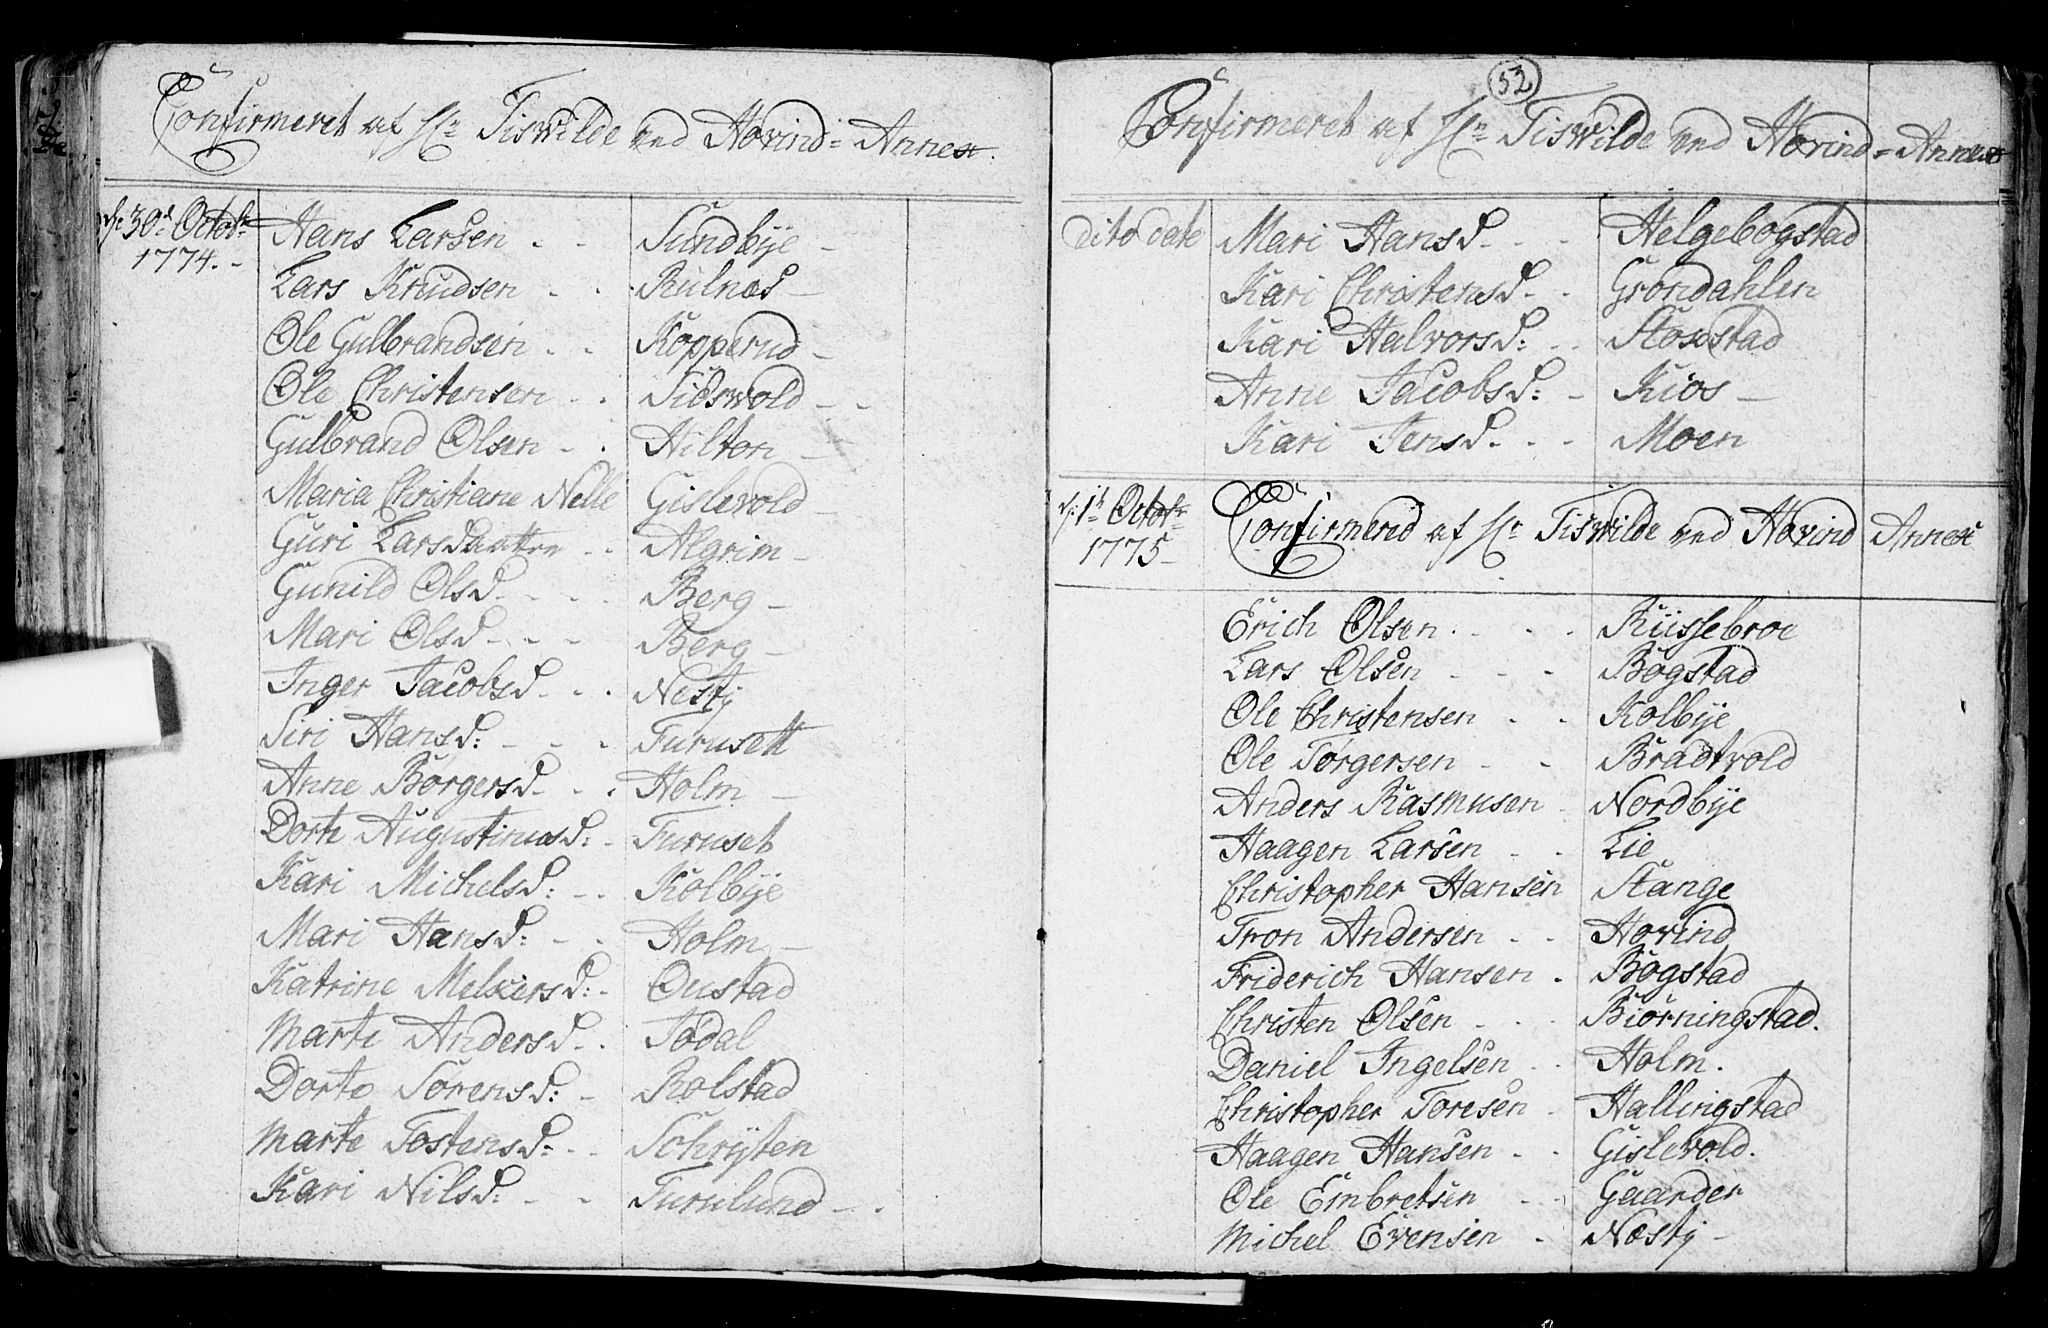 Confirmeret af Hr Tiswilde ved Hovind= Annex.
d: 30d Octobr Hans Larsen - - Sundbye -
1774. -
Lars Knudsen - - Rulnæs -
Ole Gulbrandsen - - Kopperud -
Ole Christensen - - Sidsvold - -
Gulbrand Olsen - - Hilton -
Maria Christiane Nelle Gislevold -
Guri Larsdautter - - Algrim -
Gunild Olsd. - - - Berg -
Mari Olsd - - - Berg -
Inger Jacobsd - - - Nestj
Siri Hansd: - - - Furusett
Anne Børgersd - - - Holm -
Dorte Augustinusd: - Furuset
Kari Michelsd: - - Kolbye
Mari Hansd: - - Holm -
Katrine Melkersd: - Oustad
Marte Andersd - - Jødal
Dorte Sørensd: - Rolstad
Marte Tostensd: - - Schrÿten
Kari Nilsd: - - Furulund - -
52
Confirmeret af Hr Tiswilde ved Hovind= Annex
Dito Dato Mari Hansd - - - Helgebogstad
Kari Christensd - - Grøndahlen
Kari Halvorsd: - - Stoxstad
Anne Jacobsd: - Kios -
Kari Jensd - - - Moen
d: 1te Octobr Confirmerid af Hr Tiswilde ved Hovind Annex
1775 -
Erich Olsen - - - Russebroe
Lars Olsen - - - Bogstad
Ole Christensen - - Kolbye
Ole Tørgersen - - Bradtvold
Anders Rasmusen - Nordbye
Haagen Larsen - - Lie
Christopher Hansen Stange
Tron Andersen - - Hovind
Friderich Hansen - Bogstad
Christen Olsen - - - Biørningstad.
Daniel Ingelsen - - Holm.
Christopher Toresen - Hallingstad
Haagen Hansen - - Gislevold.
Ole Embretsen - - Gaarder
Michel Evensen - Næstj -